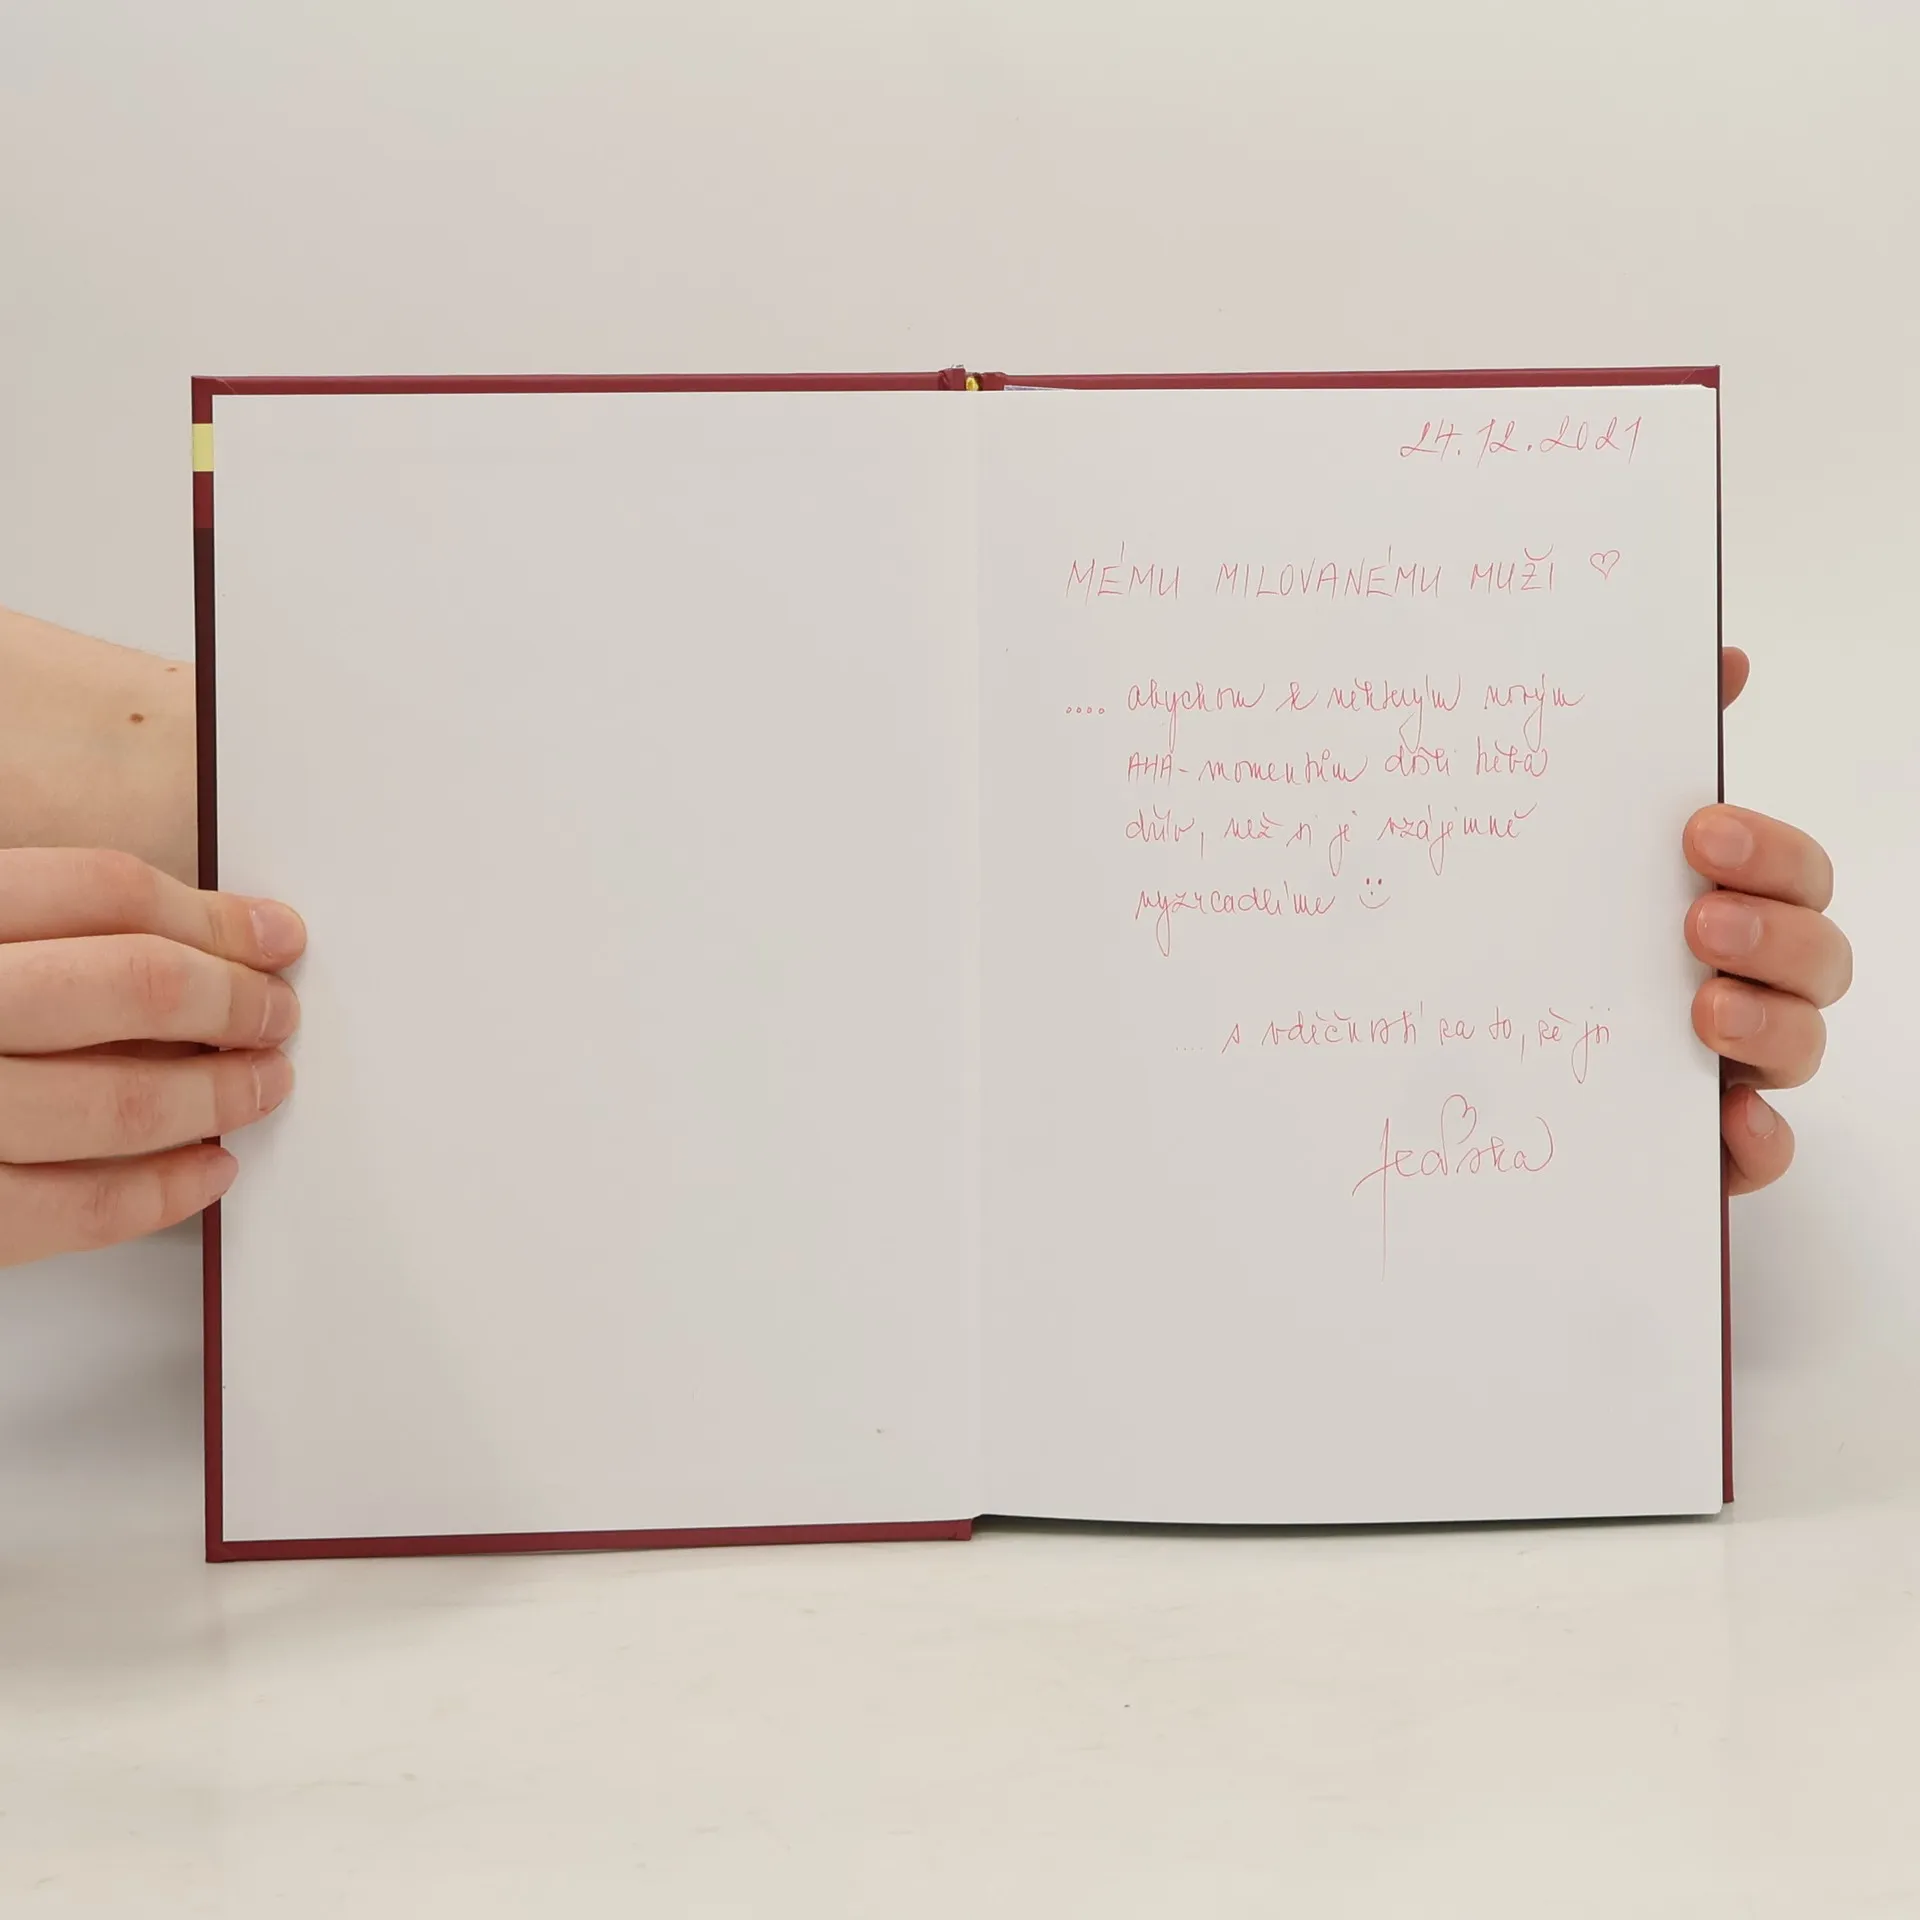 24.12.2021
MÉMU MILOVANÉMU MUŽI ♡
.... abychom k některým novým
AHA-momentům došli třeba
dřív, než si je vzájemně
vyzrcadlíme
.... s vděčností za to, že jsi